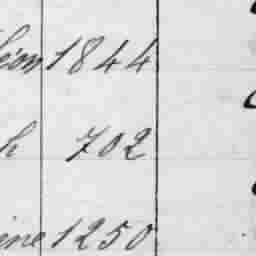 éon 1844
h 702
ine 1250